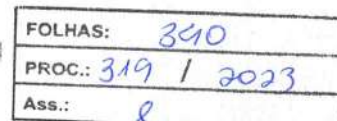 FOLHAS: 340
PROC.: 319 / 2023
Ass.: